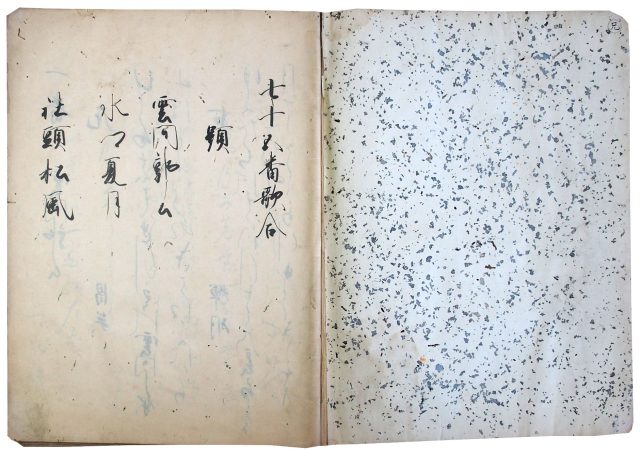 七十五番歌合
題
雲間郭公
水上夏月
社頭松風